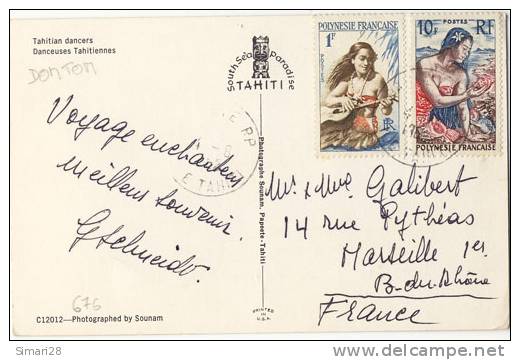 Tahitian dancers
Danceuses Tahitiennes
DOM TOM
South Sea paradise
TAHITI
POLYNESIE FRANÇAISE
1F
RF
10F POSTES RF
POLYNESIE FRANÇAISE
Voyage enchanteur
meilleur souvenir.
GSchneider.
Mr & Mme Galibert
14 rue Pythéas
Marseille 1er
B-du-Rhône
France
Photographe Sounam, Papeete-Tahiti
676
C12012—Photographed by Sounam
PRINTED
IN
U.S.A.
Simar28
www.delcampe.net